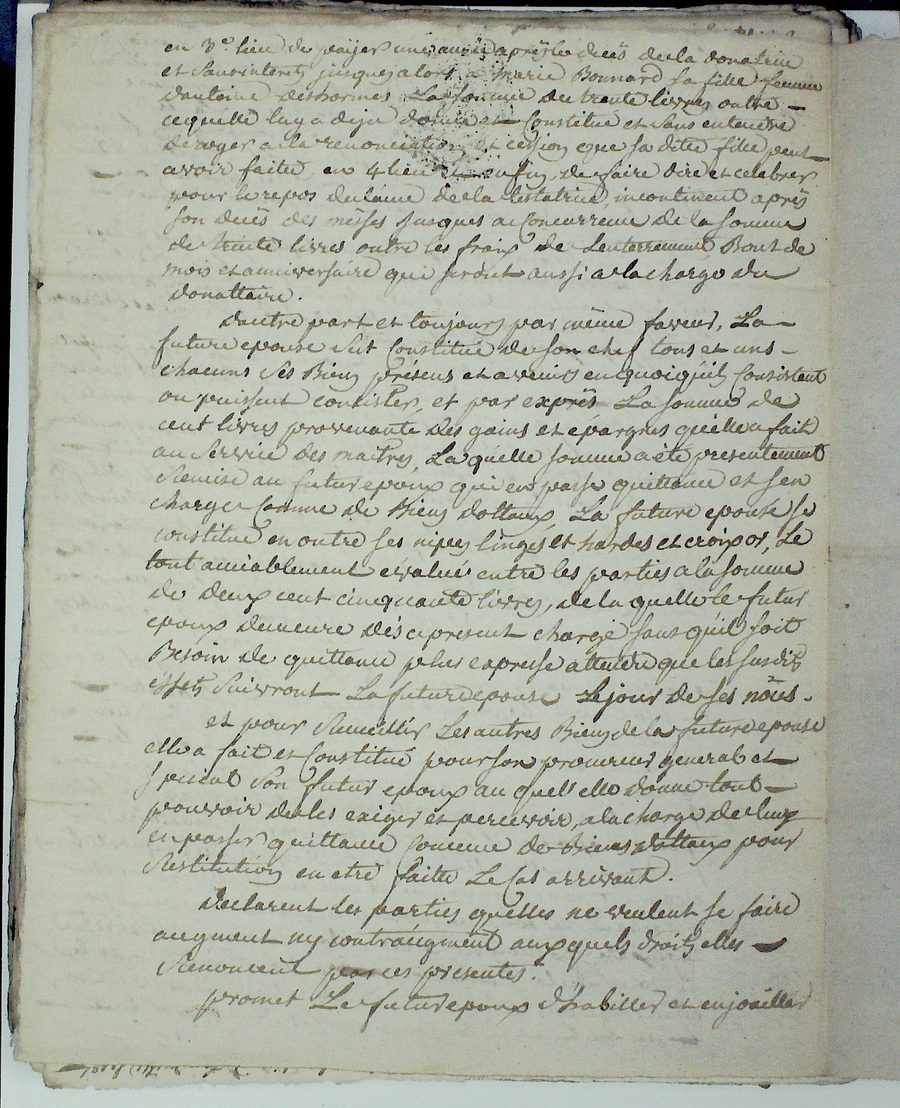 en 3e. lieu de païer une année après le decès de la donatrice
et sans interets jusques alors a marie Bonnard sa fille femme
dantoine desbormes La somme de trente livres outre –
ce quelle luy a deja donné et constitué et sans entendre
deroger a la renonciation et cession que sa dite fille peut
avoir faite, en 4 lieu et enfin, de faire dire et celebrer
pour le repos de lame de la testatrice, incontinent après
son decès des messes jusques a concurrence de la somme
de trente livres outre les fraix de Lenterrement Bout de
mois et anniversaire qui seront aussi a la charge du
donattaire.
Dautre part et toujours par même faveur, La –
future epouse s'est Constitué de son chef tous et uns –
chacuns ses Biens présens et avenir en quoi quils consistent
ou puissent consister, et par exprès La somme de
cent livres provenante des gains et epargnes quelle a fait
au service des maitres, La quelle somme a été presentement
Remise au futur epoux qui en passe quittance et sen
charge comme de Biens dottaux, La future epouse se
constitue en outre ses nipes linges et hardes et croix or, Le
tout amiablement evalué entre les parties a la somme
de deux cent cinquante livres, de la quelle le futur
epoux demeure dés a present chargé sans quil soit
Besoin de quittance plus expresse attendu que les susdits
effets suivront La future epouse Le jour de ses nôces.
et pour Recueillir Les autres Biens de la future epouse
elle a fait et constitué pour son procureur general et
special son futur epoux au quel elle donne tout –
pouvoir de les exiger et percevoir, a la charge de luy
en passer quittance comme de biens dottaux pour
Restitution en etre faitte Le Cas arrivant.
Declarent les parties quelles ne veulent se faire
augment ny contraugment aux quels droits elles –
Renoncent par ces presentes.
promet Le futur epoux d'habiller et enjoailler